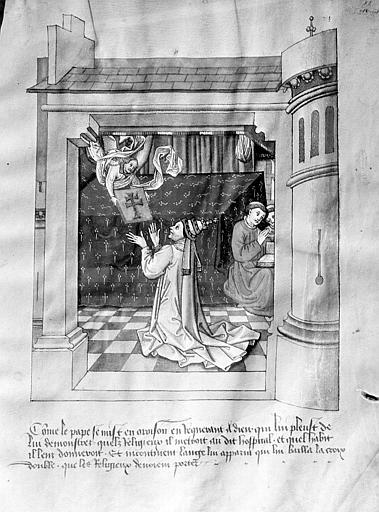 Côme le pape se mist en oroison en requerant a dieu qui luy pleust de
luy demonstrer quelz religieux il metroit au dit hospital et quel habit
il leur donneroit Et incontinent lange luy apparut qui luy bailla la croix
double que les Religieux devoient porter